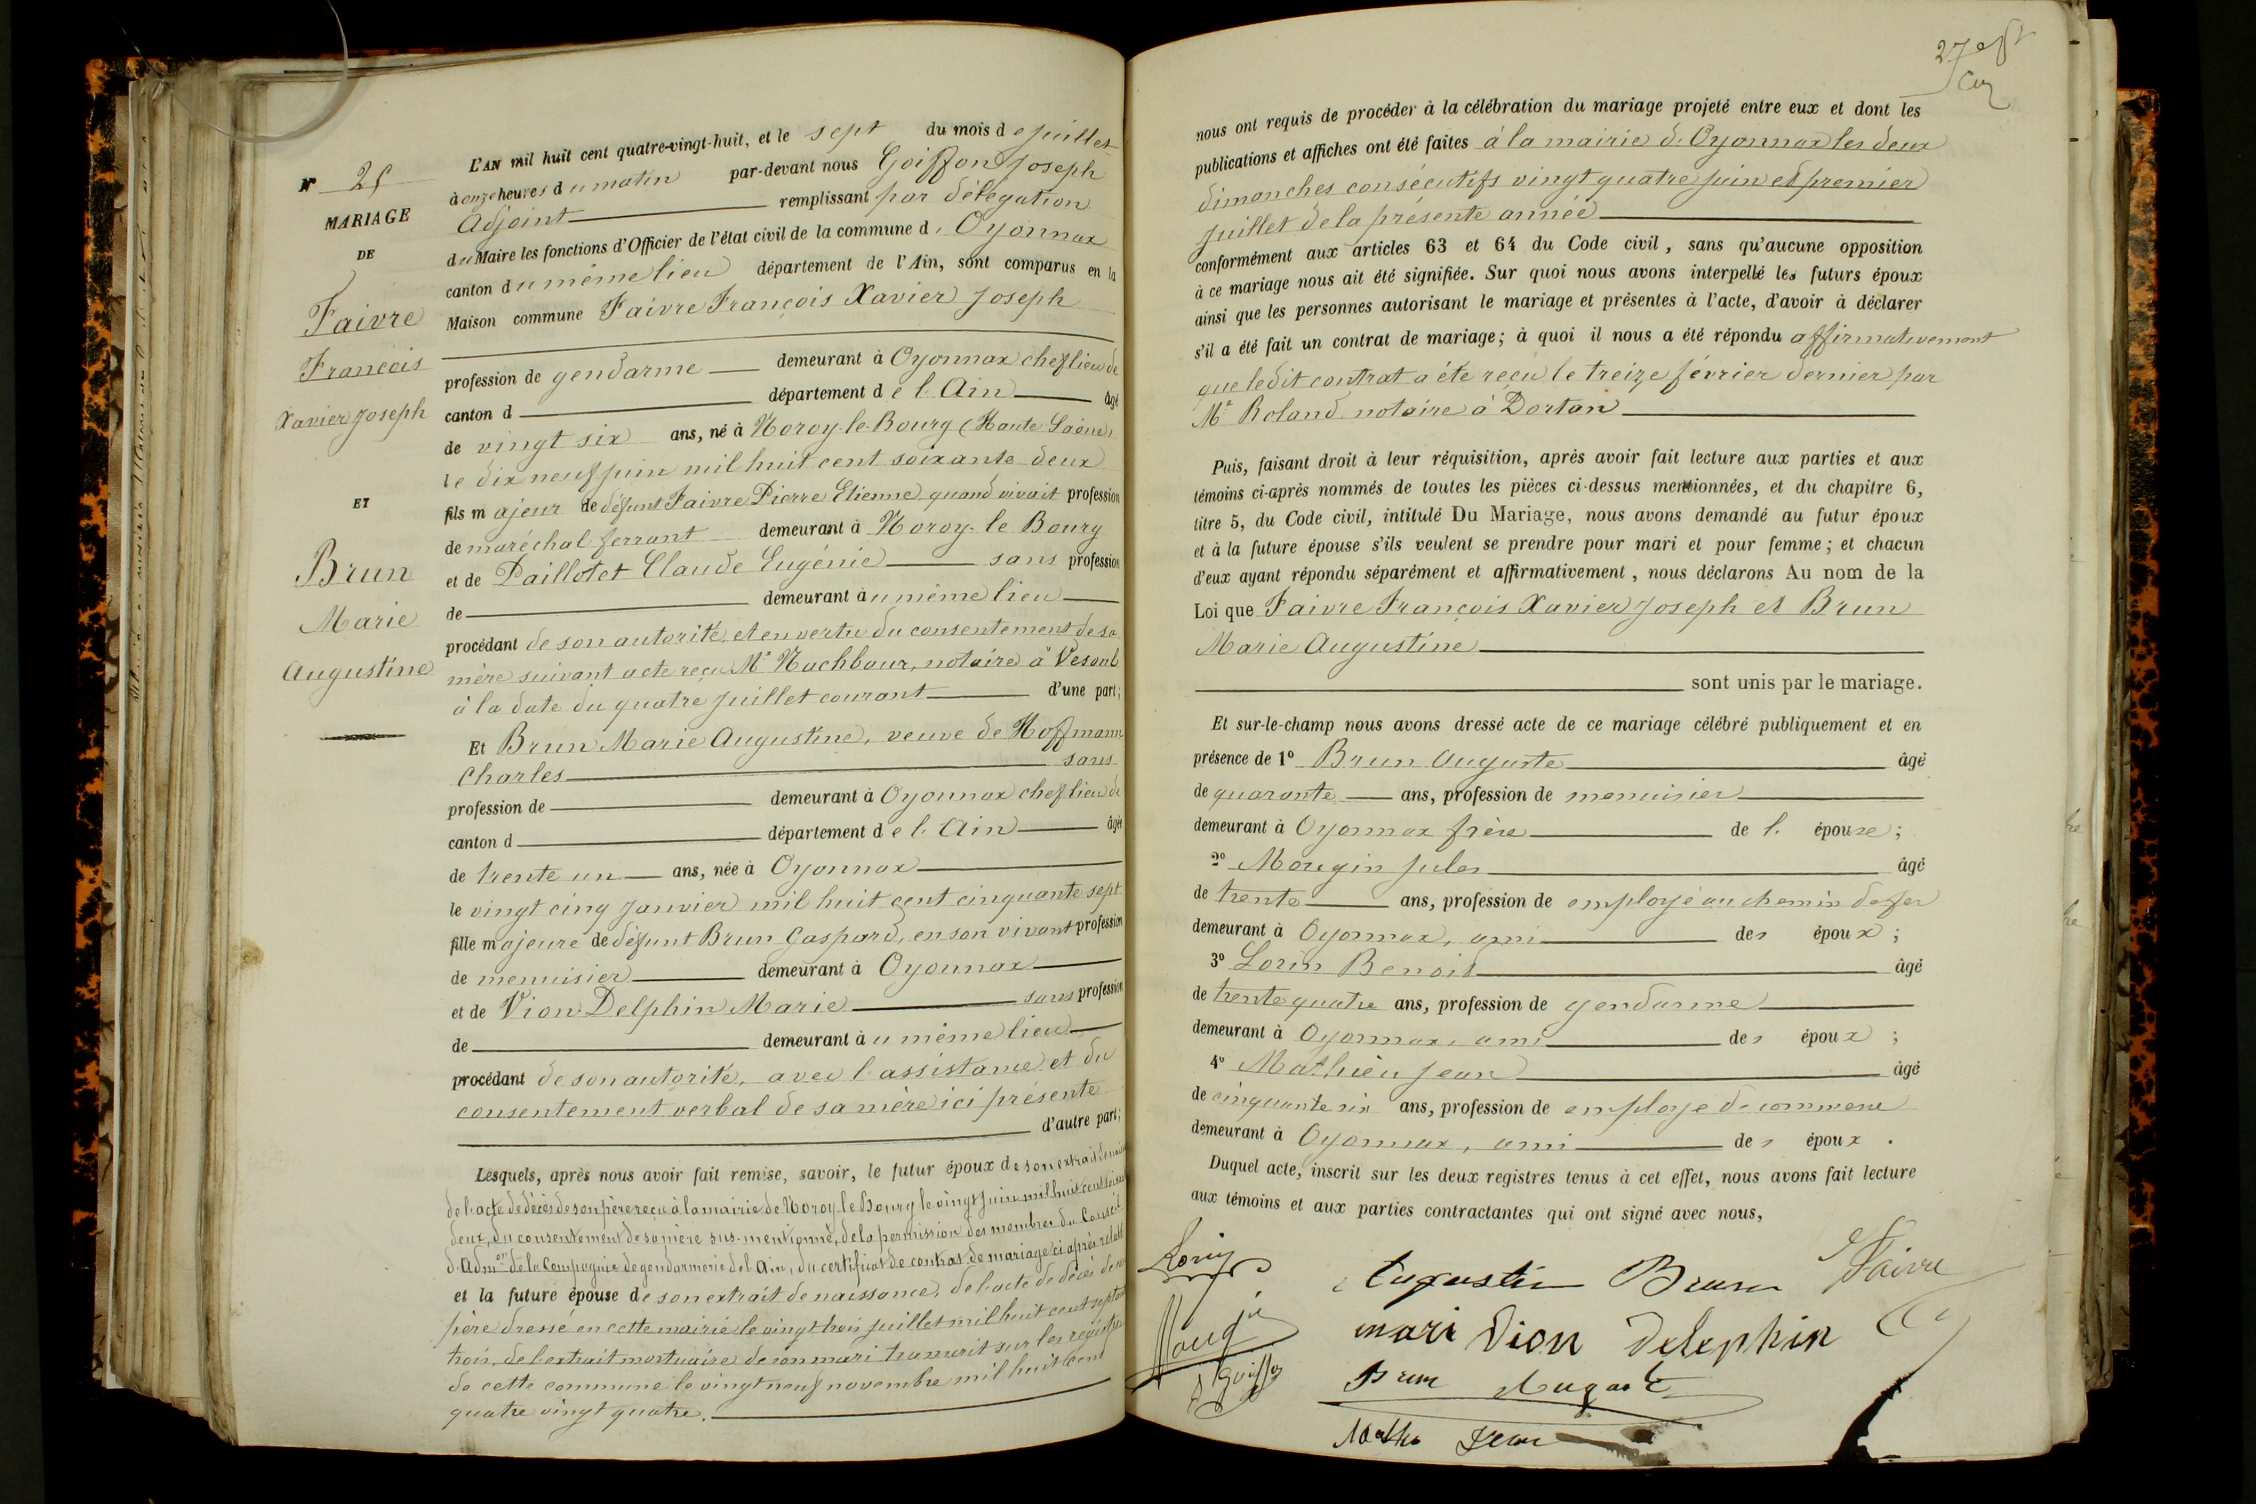 N° 25
MARIAGE
DE
Faivre
François
Xavier Joseph
ET
Brun
Marie
Augustine
L'AN mil huit cent quatre-vingt-huit, et le sept du mois de juillet
à onze heures du matin par-devant nous Goiffon Joseph
Adjoint remplissant par délégation
du Maire les fonctions d'Officier de l'état civil de la commune d'Oyonnax
canton du même lieu département de l'Ain, sont comparus en la
Maison commune Faivre François Xavier Joseph
profession de gendarme demeurant à Oyonnax chef lieu de
canton d département de l'Ain âgé
de vingt six ans, né à Noroy-le-Bourg (Haute Saône)
le dix neuf juin mil huit cent soixante deux
fils majeur de défunt Faivre Pierre Etienne quand vivait profession
de maréchal ferrant demeurant à Noroy-le Bourg
et de Paillotet Claude Eugénie sans profession
de demeurant au même lieu
procédant de son autorité et en vertu du consentement de sa
mère suivant acte reçu Me Nachbaur, notaire à Vesoul
à la date du quatre juillet courant d'une part;
Et Brun Marie Augustine, veuve de Hoffmann
Charles sans
profession de demeurant à Oyonnax chef lieu de
canton d département de l'Ain âgée
de trente un ans, née à Oyonnax
le vingt cinq janvier mil huit cent cinquante sept
fille majeure de défunt Brun Gaspard, en son vivant profession
de menuisier demeurant à Oyonnax
et de Vion Delphin Marie sans profession
de demeurant au même lieu
procédant de son autorité, avec l'assistance et du
consentement verbal de sa mère ici présente
d'autre part;
Lesquels, après nous avoir fait remise, savoir, le futur époux de son extrait de
de l'acte de décès de son père reçu à la mairie de Noroy-le-Bourg le vingt juin mil huit cent
deux, du consentement de sa mère sus-mentionné, de la permission des membres du Conseil
d'Admon de la Compagnie de gendarmerie de l'Ain, du certificat de contrat de mariage ci après relaté
et la future épouse de son extrait de naissance, de l'acte de décès de son
père dressé en cette mairie le vingt trois juillet mil huit cent septante
trois, de l'extrait mortuaire de son mari transcrit sur les registres
de cette commune le vingt neuf novembre mil huit cent
quatre vingt quatre.
nous ont requis de procéder à la célébration du mariage projeté entre eux et dont les
publications et affiches ont été faites à la mairie d'Oyonnax les deux
dimanches consécutifs vingt quatre juin et premier
juillet de la présente année
conformément aux articles 63 et 64 du Code civil, sans qu'aucune opposition
à ce mariage nous ait été signifiée. Sur quoi nous avons interpellé les futurs époux
ainsi que les personnes autorisant le mariage et présentes à l'acte, d'avoir à déclarer
s'il a été fait un contrat de mariage; à quoi il nous a été répondu affirmativement
que ledit contrat a été reçu le treize février dernier par
Me Roland notaire à Dortan
Puis, faisant droit à leur réquisition, après avoir fait lecture aux parties et aux
témoins ci-après nommés de toutes les pièces ci-dessus mentionnées, et du chapitre 6,
titre 5, du Code civil, intitulé Du Mariage, nous avons demandé au futur époux
et à la future épouse s'ils veulent se prendre pour mari et pour femme; et chacun
d'eux ayant répondu séparément et affirmativement, nous déclarons Au nom de la
Loi que Faivre François Xavier Joseph et Brun
Marie Augustine
sont unis par le mariage.
Et sur-le-champ nous avons dressé acte de ce mariage célébré publiquement et en
présence de 1° Brun Auguste âgé
de quarante ans, profession de menuisier
demeurant à Oyonnax frère de l'épouse;
2° Mougin Jules âgé
de trente ans, profession de employé au chemin de fer
demeurant à Oyonnax, ami des époux;
3° Lorin Benoit âgé
de trente quatre ans, profession de gendarme
demeurant à Oyonnax, ami des époux;
4° Mathieu Jean âgé
de cinquante six ans, profession de employé de commerce
demeurant à Oyonnax, ami des époux.
Duquel acte, inscrit sur les deux registres tenus à cet effet, nous avons fait lecture
aux témoins et aux parties contractantes qui ont signé avec nous,
Lorin
Augustin Brun Faivre
Mougin
mari Vion delephin
Goiffon
Brun August
Jean